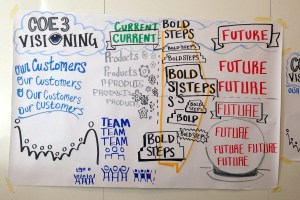 COE3
VISIONING
Our Customers
Our Customers
Our Customers
Our Customers
CURRENT
CURRENT
Products
Products
PRODUCTS
PRODUCT
TEAM
TEAM
TEAM
BOLD
STEPS
BOLD STEPS
BOLD STEPS
BOLD
STEPS
BOLD
BOLD
STEPS
FUTURE
FUTURE
FUTURE
FUTURE
FUTURE
FUTURE FUTURE
FUTURE